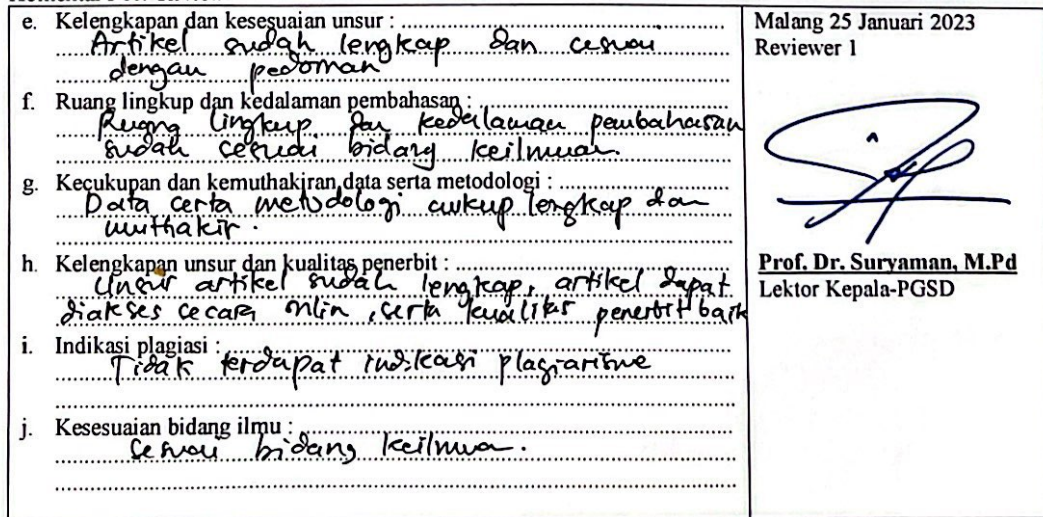 e. Kelengkapan dan kesesuaian unsur :
Artikel sudah lengkap dan cesuai
dengan pedoman
f. Ruang lingkup dan kedalaman pembahasan :
Ruang lingkup dan kedalaman pembahasan
sudah cesuai bidang keilmuan.
g. Kecukupan dan kemuthakiran data serta metodologi :
Data certa metodologi cukup lengkap dan
muthakir.
h. Kelengkapan unsur dan kualitas penerbit :
Unsur artikel sudah lengkap, artikel dapat
diakses cecara onlin, serta kualitas penerbit baik
i. Indikasi plagiasi :
Tidak terdapat indikasi plagiarisme
j. Kesesuaian bidang ilmu :
Cesuai bidang keilmuan.
Malang 25 Januari 2023
Reviewer 1
Prof. Dr. Suryaman, M.Pd
Lektor Kepala-PGSD